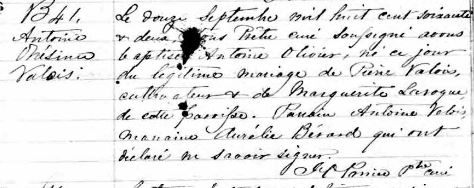 B41.
Antoine
Onésime
Valois.
Le douze Septembre mil huit cent soixante
& deux Nous Prêtre curé soussigné avons
baptisé Antoine Olivier, né ce jour
du légitime mariage de Pierre Valois,
cultivateur & de Marguerite Laroque
de cette paroisse. Parrain Antoine Valois
marraine Aurélie Bérard qui ont
déclaré ne savoir signer.
Ptre curé